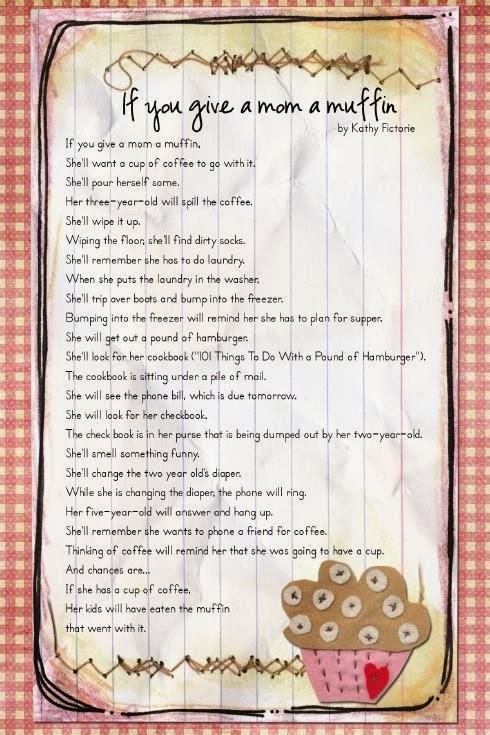 If you give a mom a muffin
by Kathy Fictorie
If you give a mom a muffin,
She'll want a cup of coffee to go with it.
She'll pour herself some.
Her three-year-old will spill the coffee.
She'll wipe it up.
Wiping the floor, she'll find dirty socks.
She'll remember she has to do laundry.
When she puts the laundry in the washer,
She'll trip over boots and bump into the freezer.
Bumping into the freezer will remind her she has to plan for supper.
She will get out a pound of hamburger.
She'll look for her cookbook ("101 Things To Do With a Pound of Hamburger").
The cookbook is sitting under a pile of mail.
She will see the phone bill, which is due tomorrow.
She will look for her checkbook.
The check book is in her purse that is being dumped out by her two-year-old.
She'll smell something funny.
She'll change the two year old's diaper.
While she is changing the diaper, the phone will ring.
Her five-year-old will answer and hang up.
She'll remember she wants to phone a friend for coffee.
Thinking of coffee will remind her that she was going to have a cup.
And chances are...
If she has a cup of coffee,
Her kids will have eaten the muffin
that went with it.